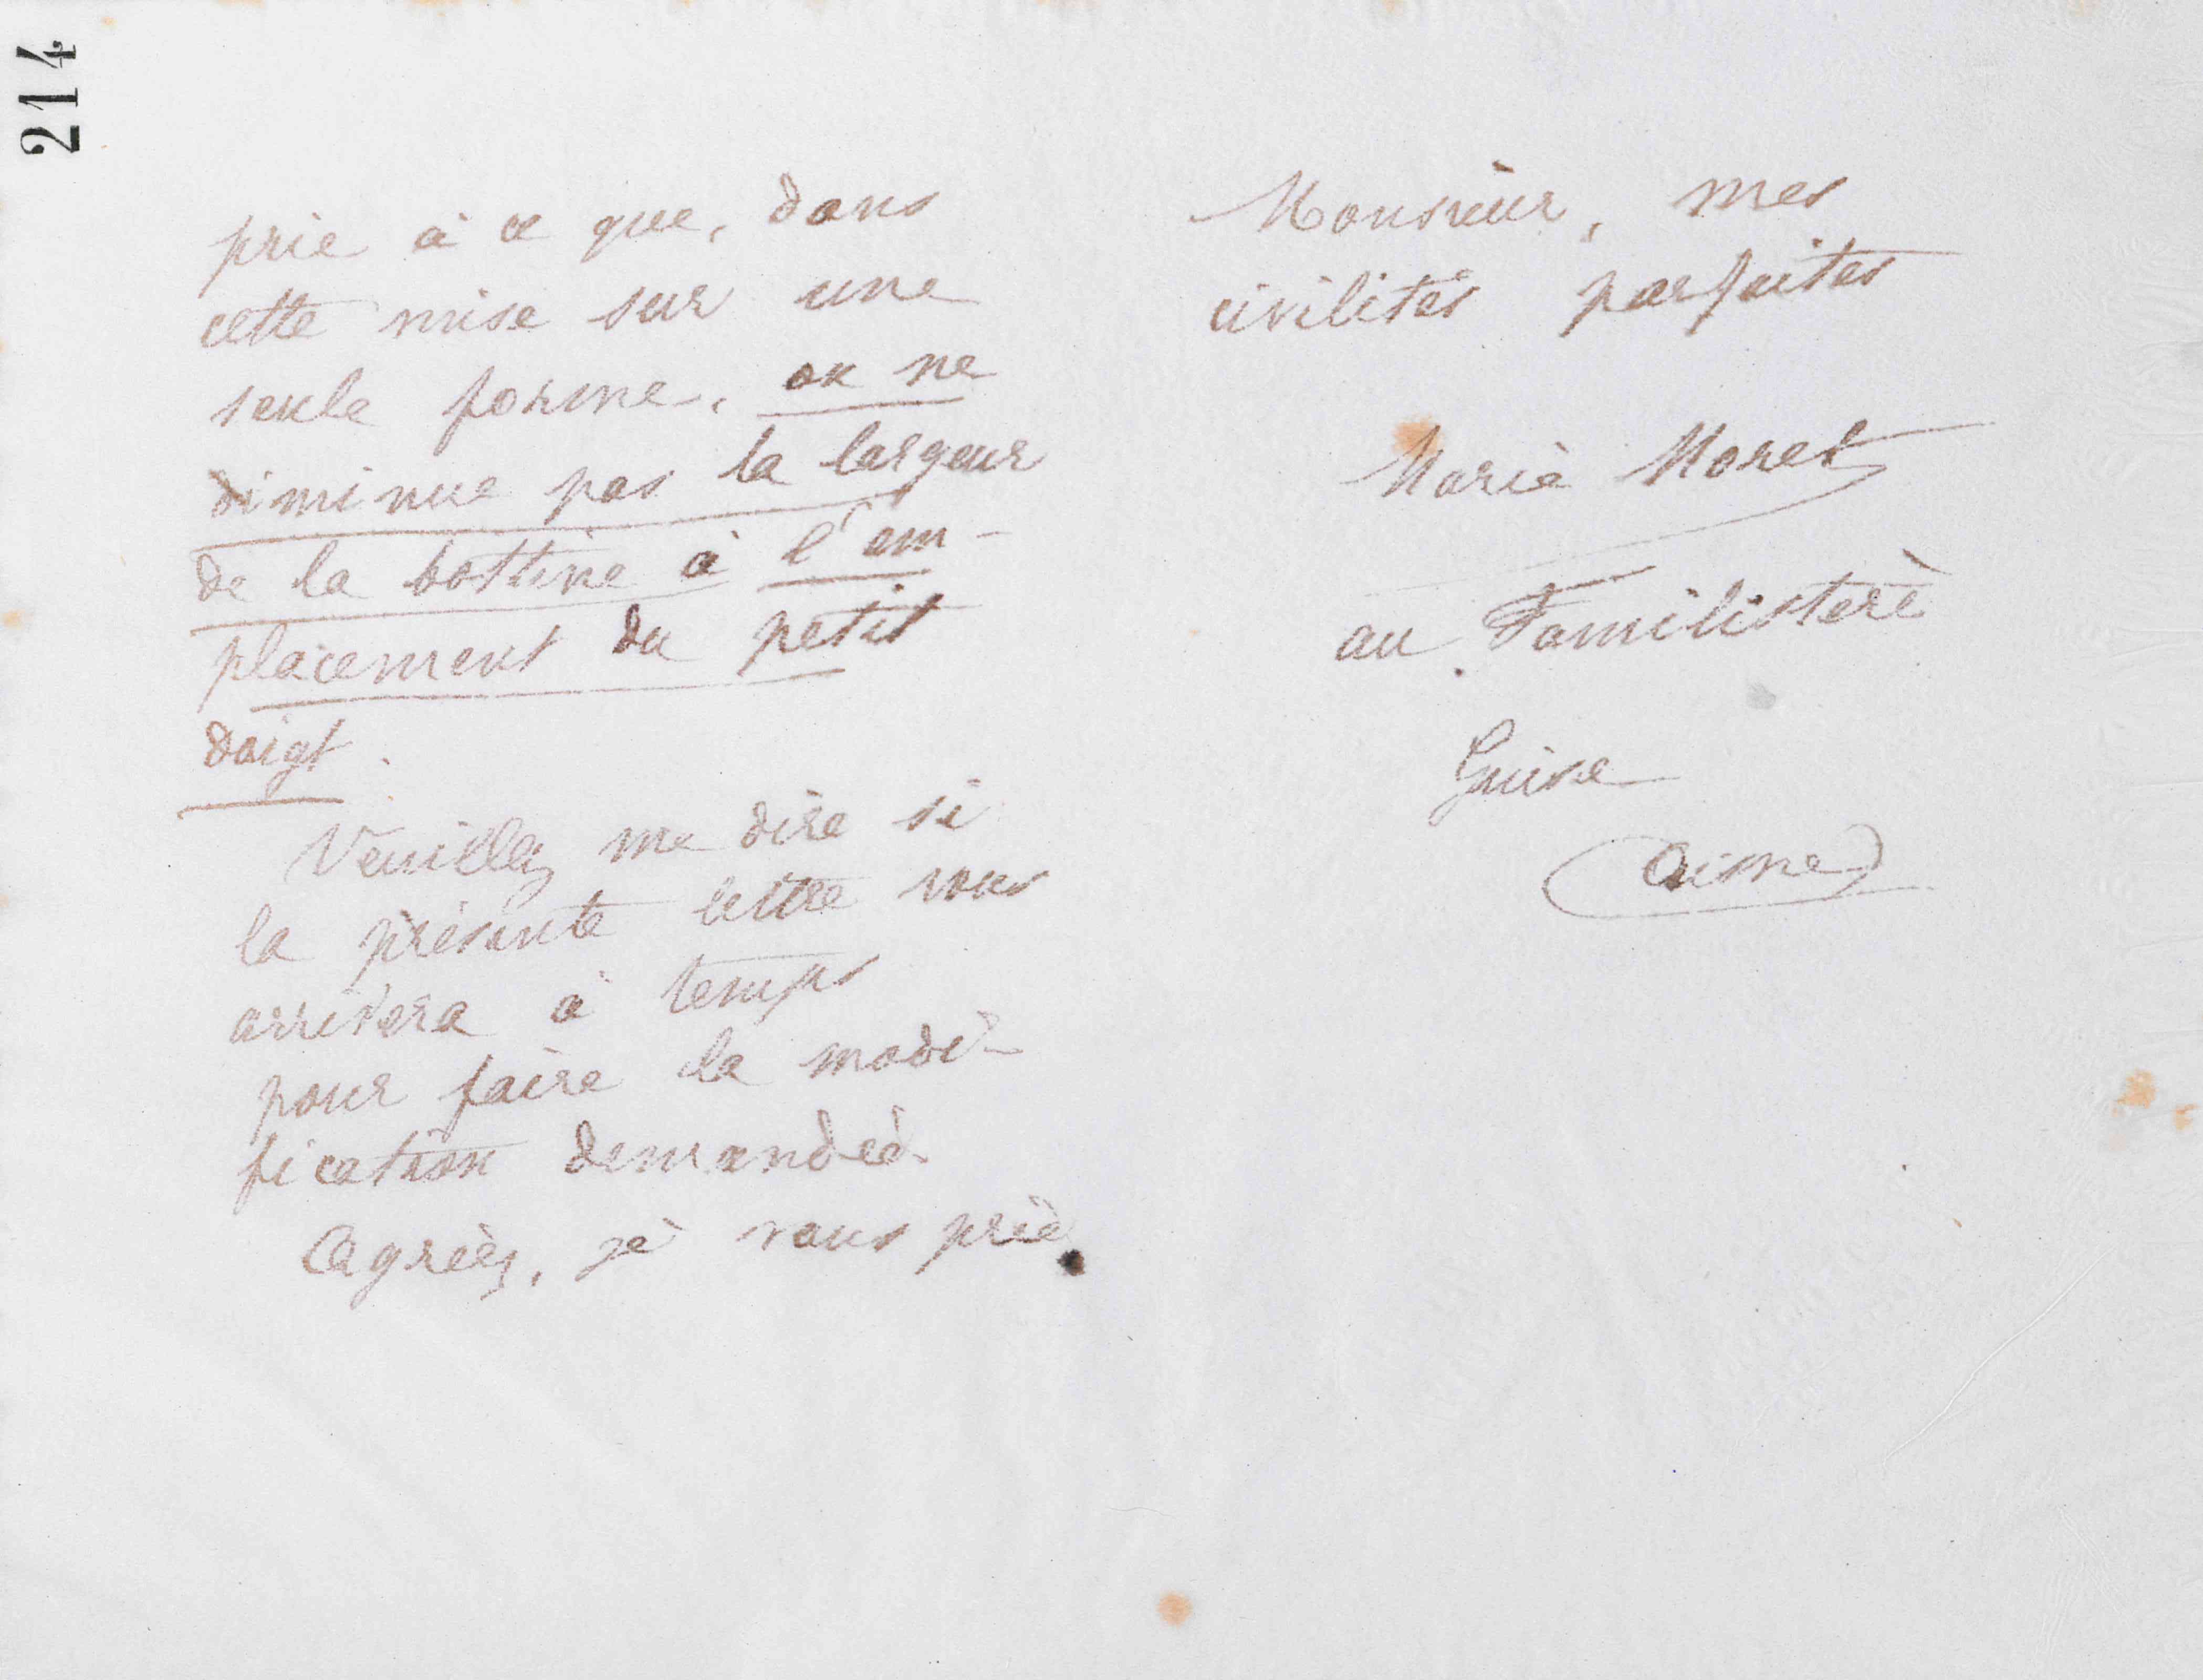 214
prie à ce que, dans
cette mise sur une
seule forme, on ne
diminue pas la largeur
de la bottine à l'em-
placement du petit
doigt.
Veuillez me dire si
la présente lettre vous
arrivera à temps
pour faire la modi-
fication demandée.
Agréez, je vous prie
Monsieur, mes
civilités parfaites
Marie Moret
au Familistère
Guise
(Aisne)